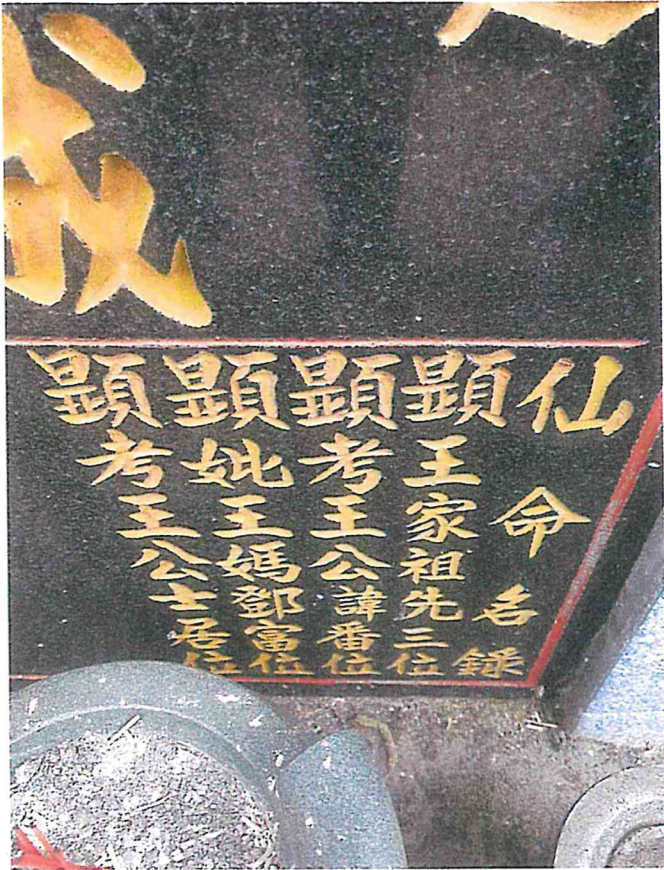 仙命名錄
顯王家祖先三位
顯考王公諱番位
顯妣王媽鄧富位
顯考王公士居位
成